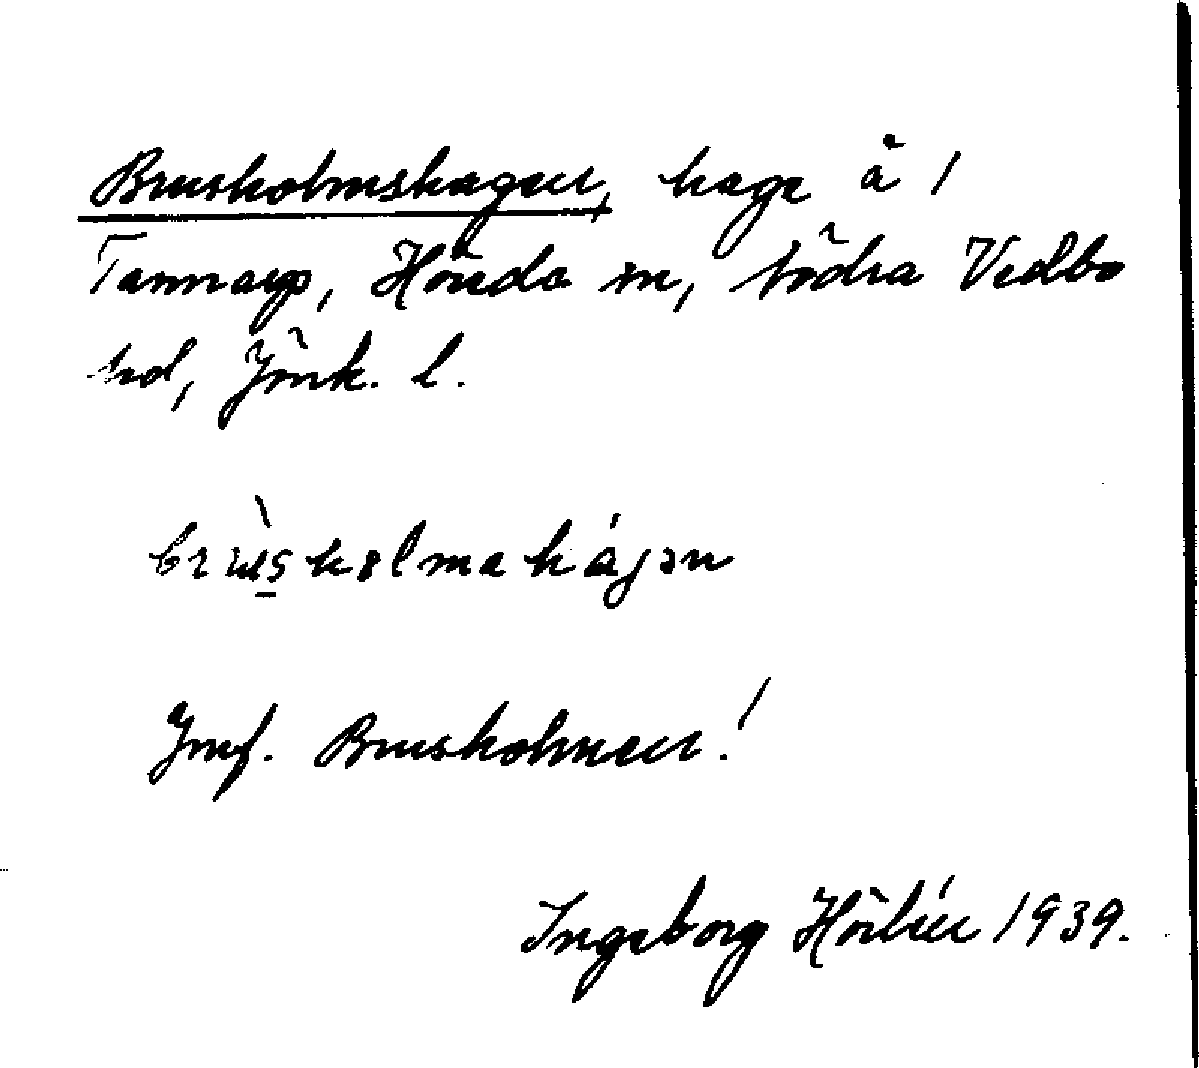 Brusholmshagen, hage å /
Tannarp, Höreda sn, Södra Vedbo
hd, Jönk. l.
brùsholmahágən
Jmf. Brusholmen!
Ingeborg Hörlén 1939.